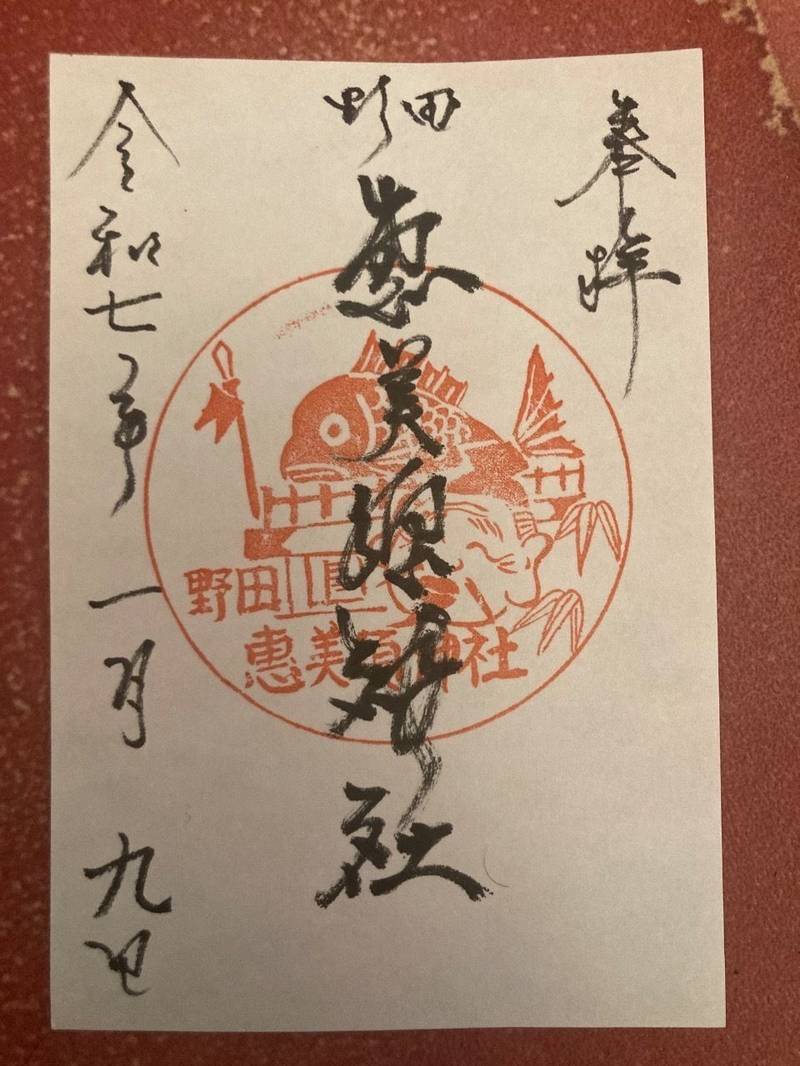 奉拝
野田
恵美須神社
野田
恵美須神社
令和七年一月九日